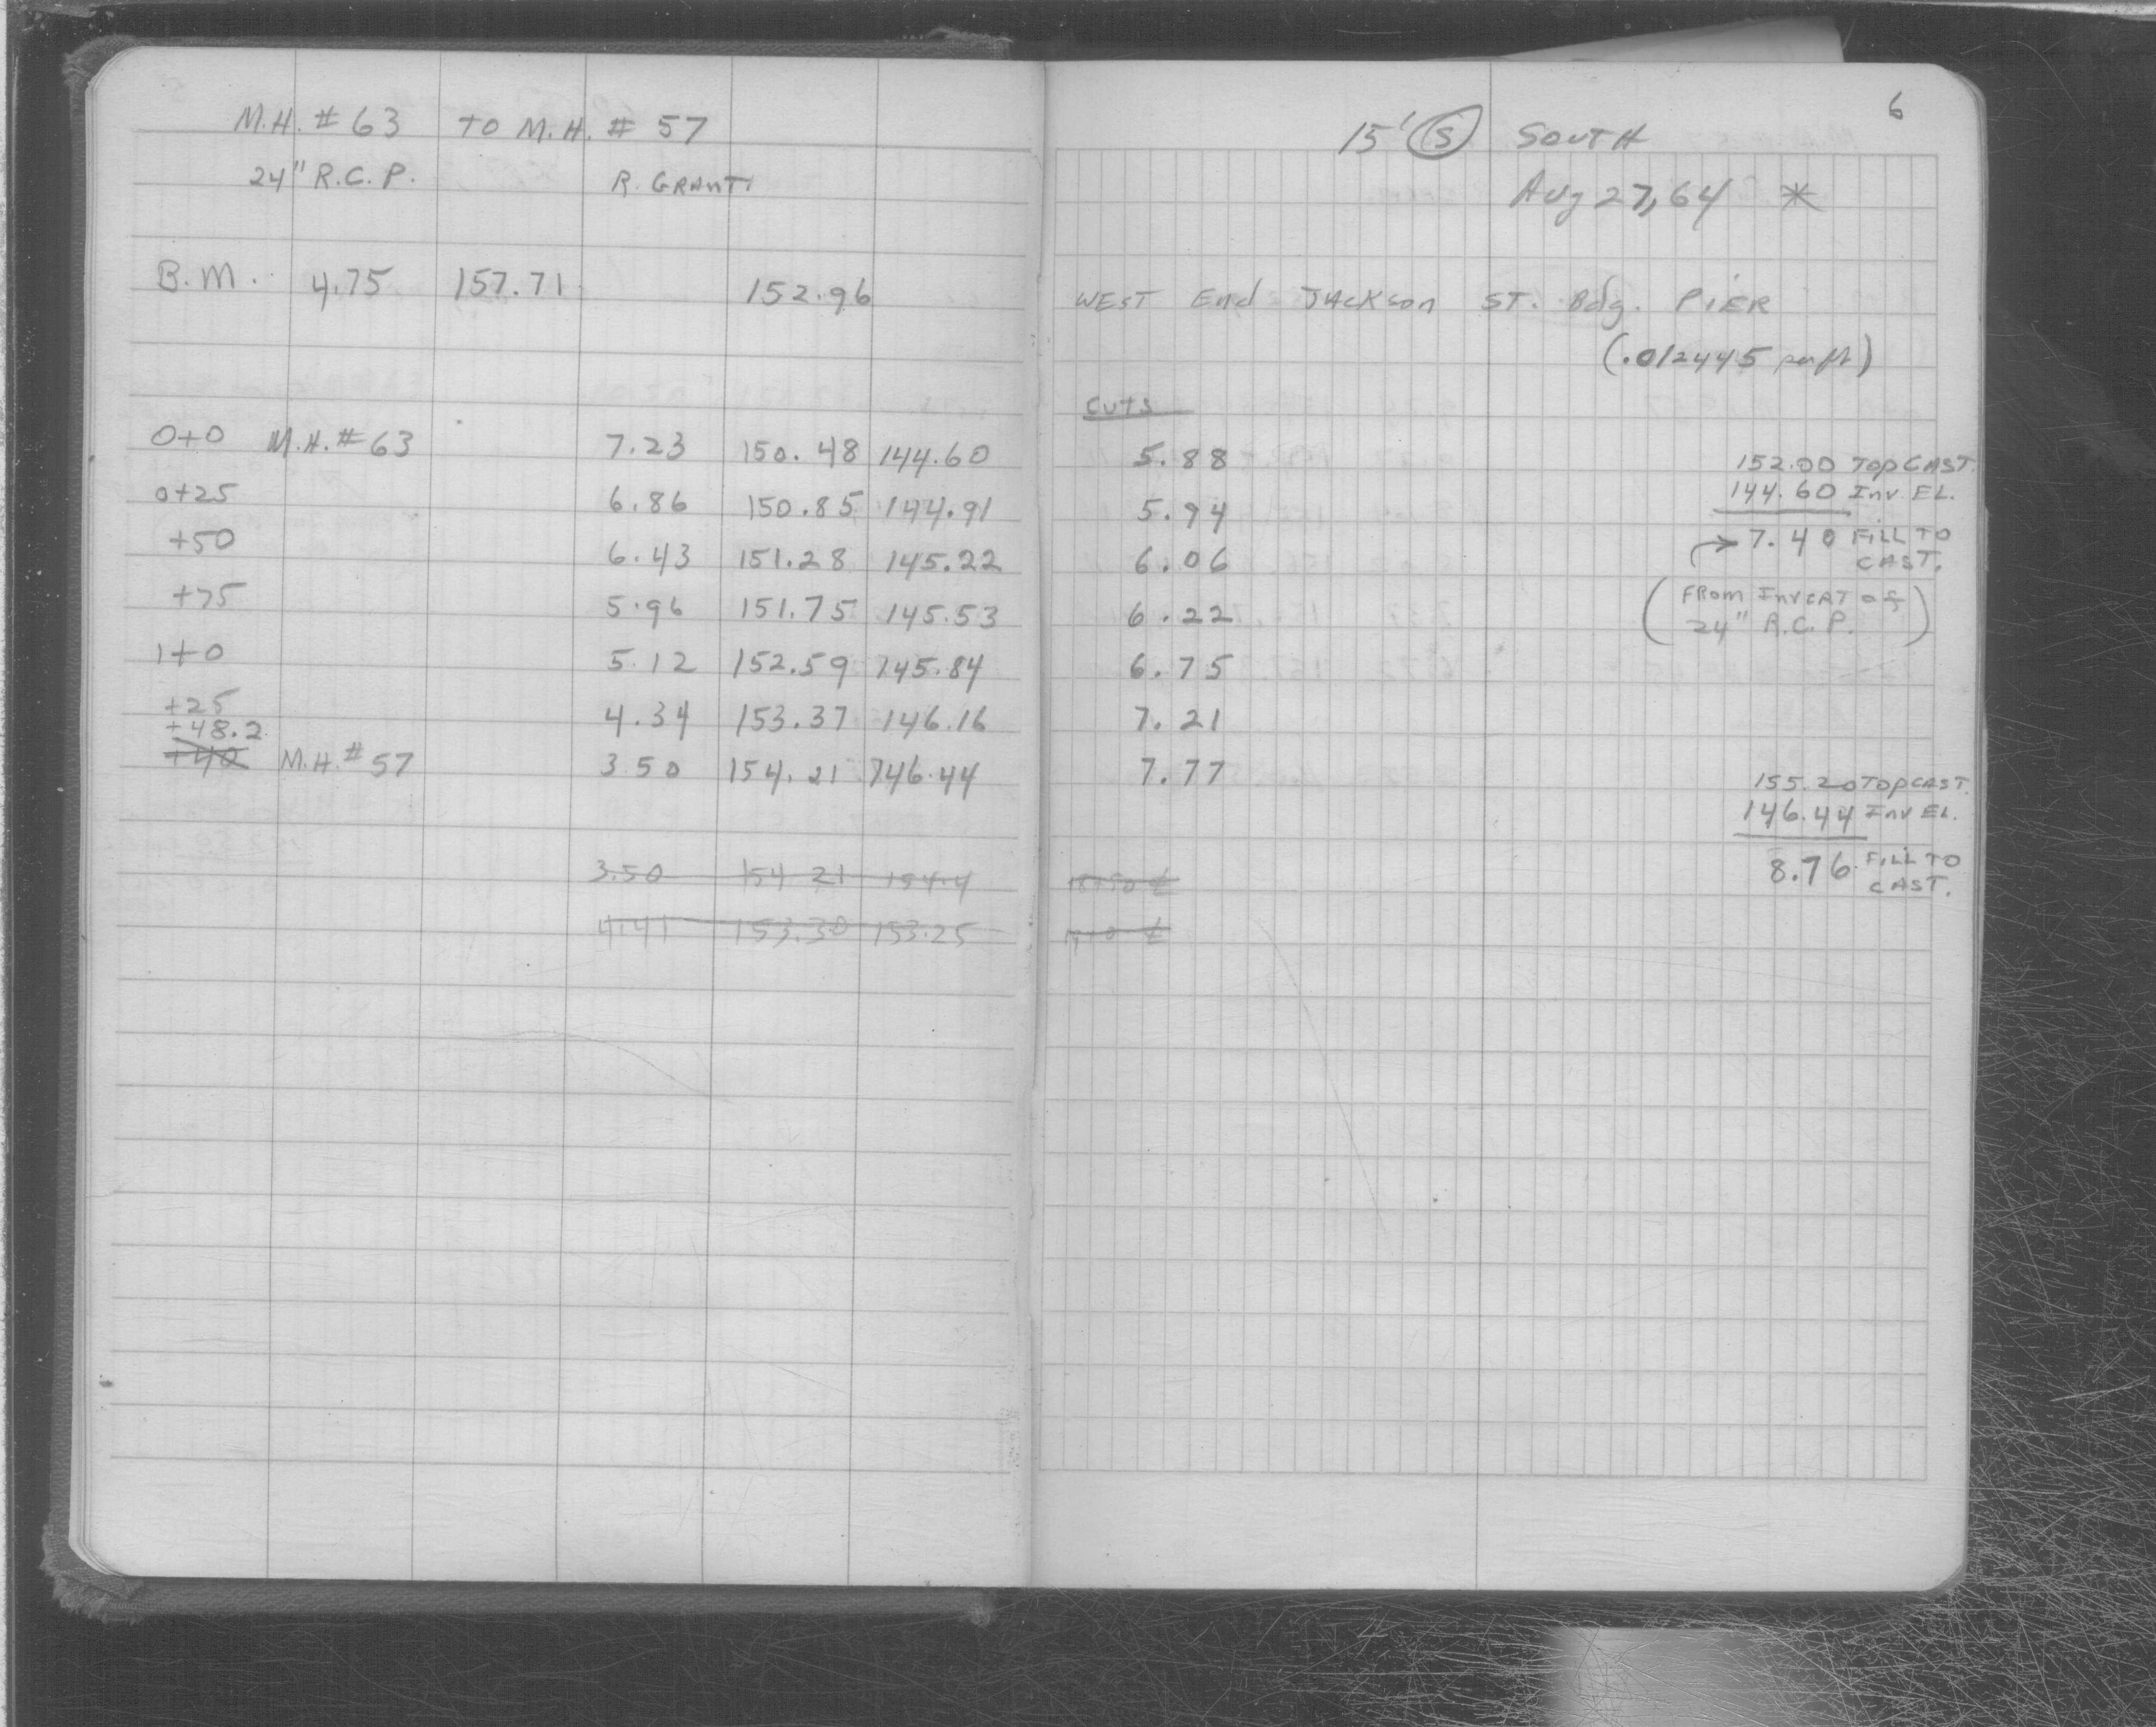 M.H. # 63 TO M.H. # 57
24" R.C.P. R. GRANT
B.M. 4.75 157.71 152.96
0+0 M.H. # 63 7.23 150.48 144.60
0+25 6.86 150.85 144.91
+50 6.43 151.28 145.22
+75 5.96 151.75 145.53
1+0 5.12 152.59 145.84
+25 4.34 153.37 146.16
+48.2
+40 M.H. # 57 3.50 154.21 146.44
3.50 154 21 154.4
4.41 153.30 153.25
6
15' S SOUTH
Aug 27, 64 *
WEST End JACKSON ST. Bdg. PIER
(.012445 per ft)
CUTS
5.88
5.94
6.06
6.22
6.75
7.21
7.77
152.00 TOP CAST.
144.60 Inv. EL.
→ 7.40 FILL TO
CAST.
(FROM INVERT of
24" R.C.P.)
155.20 TOP CAST.
146.44 Inv EL.
8.76 FILL TO
CAST.